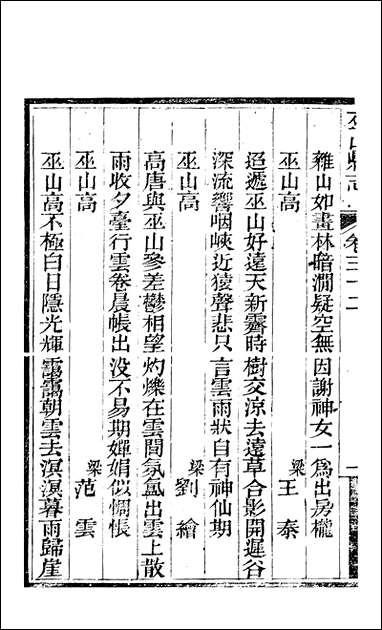 巫山縣志 卷三十二 一
雜山如畫林暗澗疑空無因謝神女一爲出房櫳
巫山高 梁 王泰
迢遞巫山好遠天新霽時樹交涼去遠草合影開遲谷
深流響咽峽近猿聲悲只言雲雨狀自有神仙期
巫山高 梁 劉繪
高唐與巫山參差鬱相望灼爍在雲間氛氳出雲上散
雨收夕臺行雲卷晨帳出没不易期嬋娟似惆悵
巫山高 梁 范雲
巫山高不極白日隱光輝靄靄朝雲去溟溟暮雨歸崖